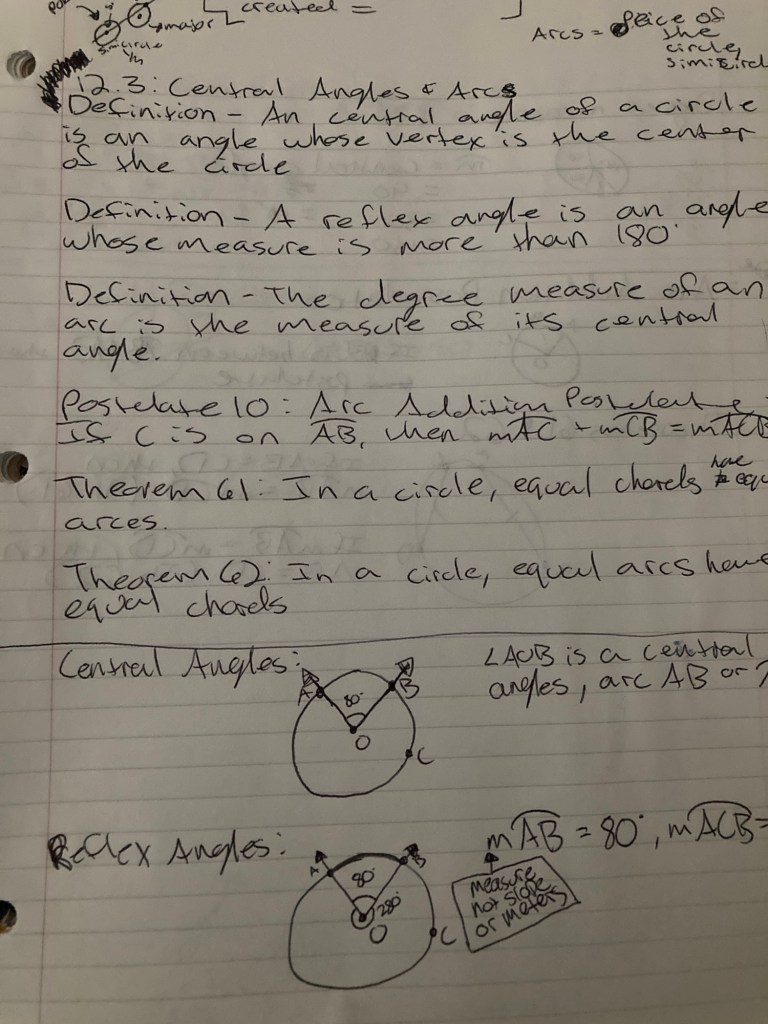 created =
major
simicircle
1/2
Arcs = Peice of
the
circle,
simicircl
12.3: Central Angles & Arcs
Definition - An central angle of a circle
is an angle whose vertex is the center
of the circle
Definition - A reflex angle is an angle
whose measure is more than 180°
Definition - The degree measure of an
arc is the measure of its central
angle.
Postelate 10: Arc Addition Postelate
If C is on AB, then mAC + mCB = mACB
Theorem 61: In a circle, equal chords have equ
arces.
Theorem 62: In a circle, equal arcs have
equal chords
Central Angles:
A
80°
B
O
C
∠AOB is a central
angles, arc AB or
Reflex Angles:
A
80°
B
280°
O
C
mAB = 80°, mACB =
measure
not slope
or meters